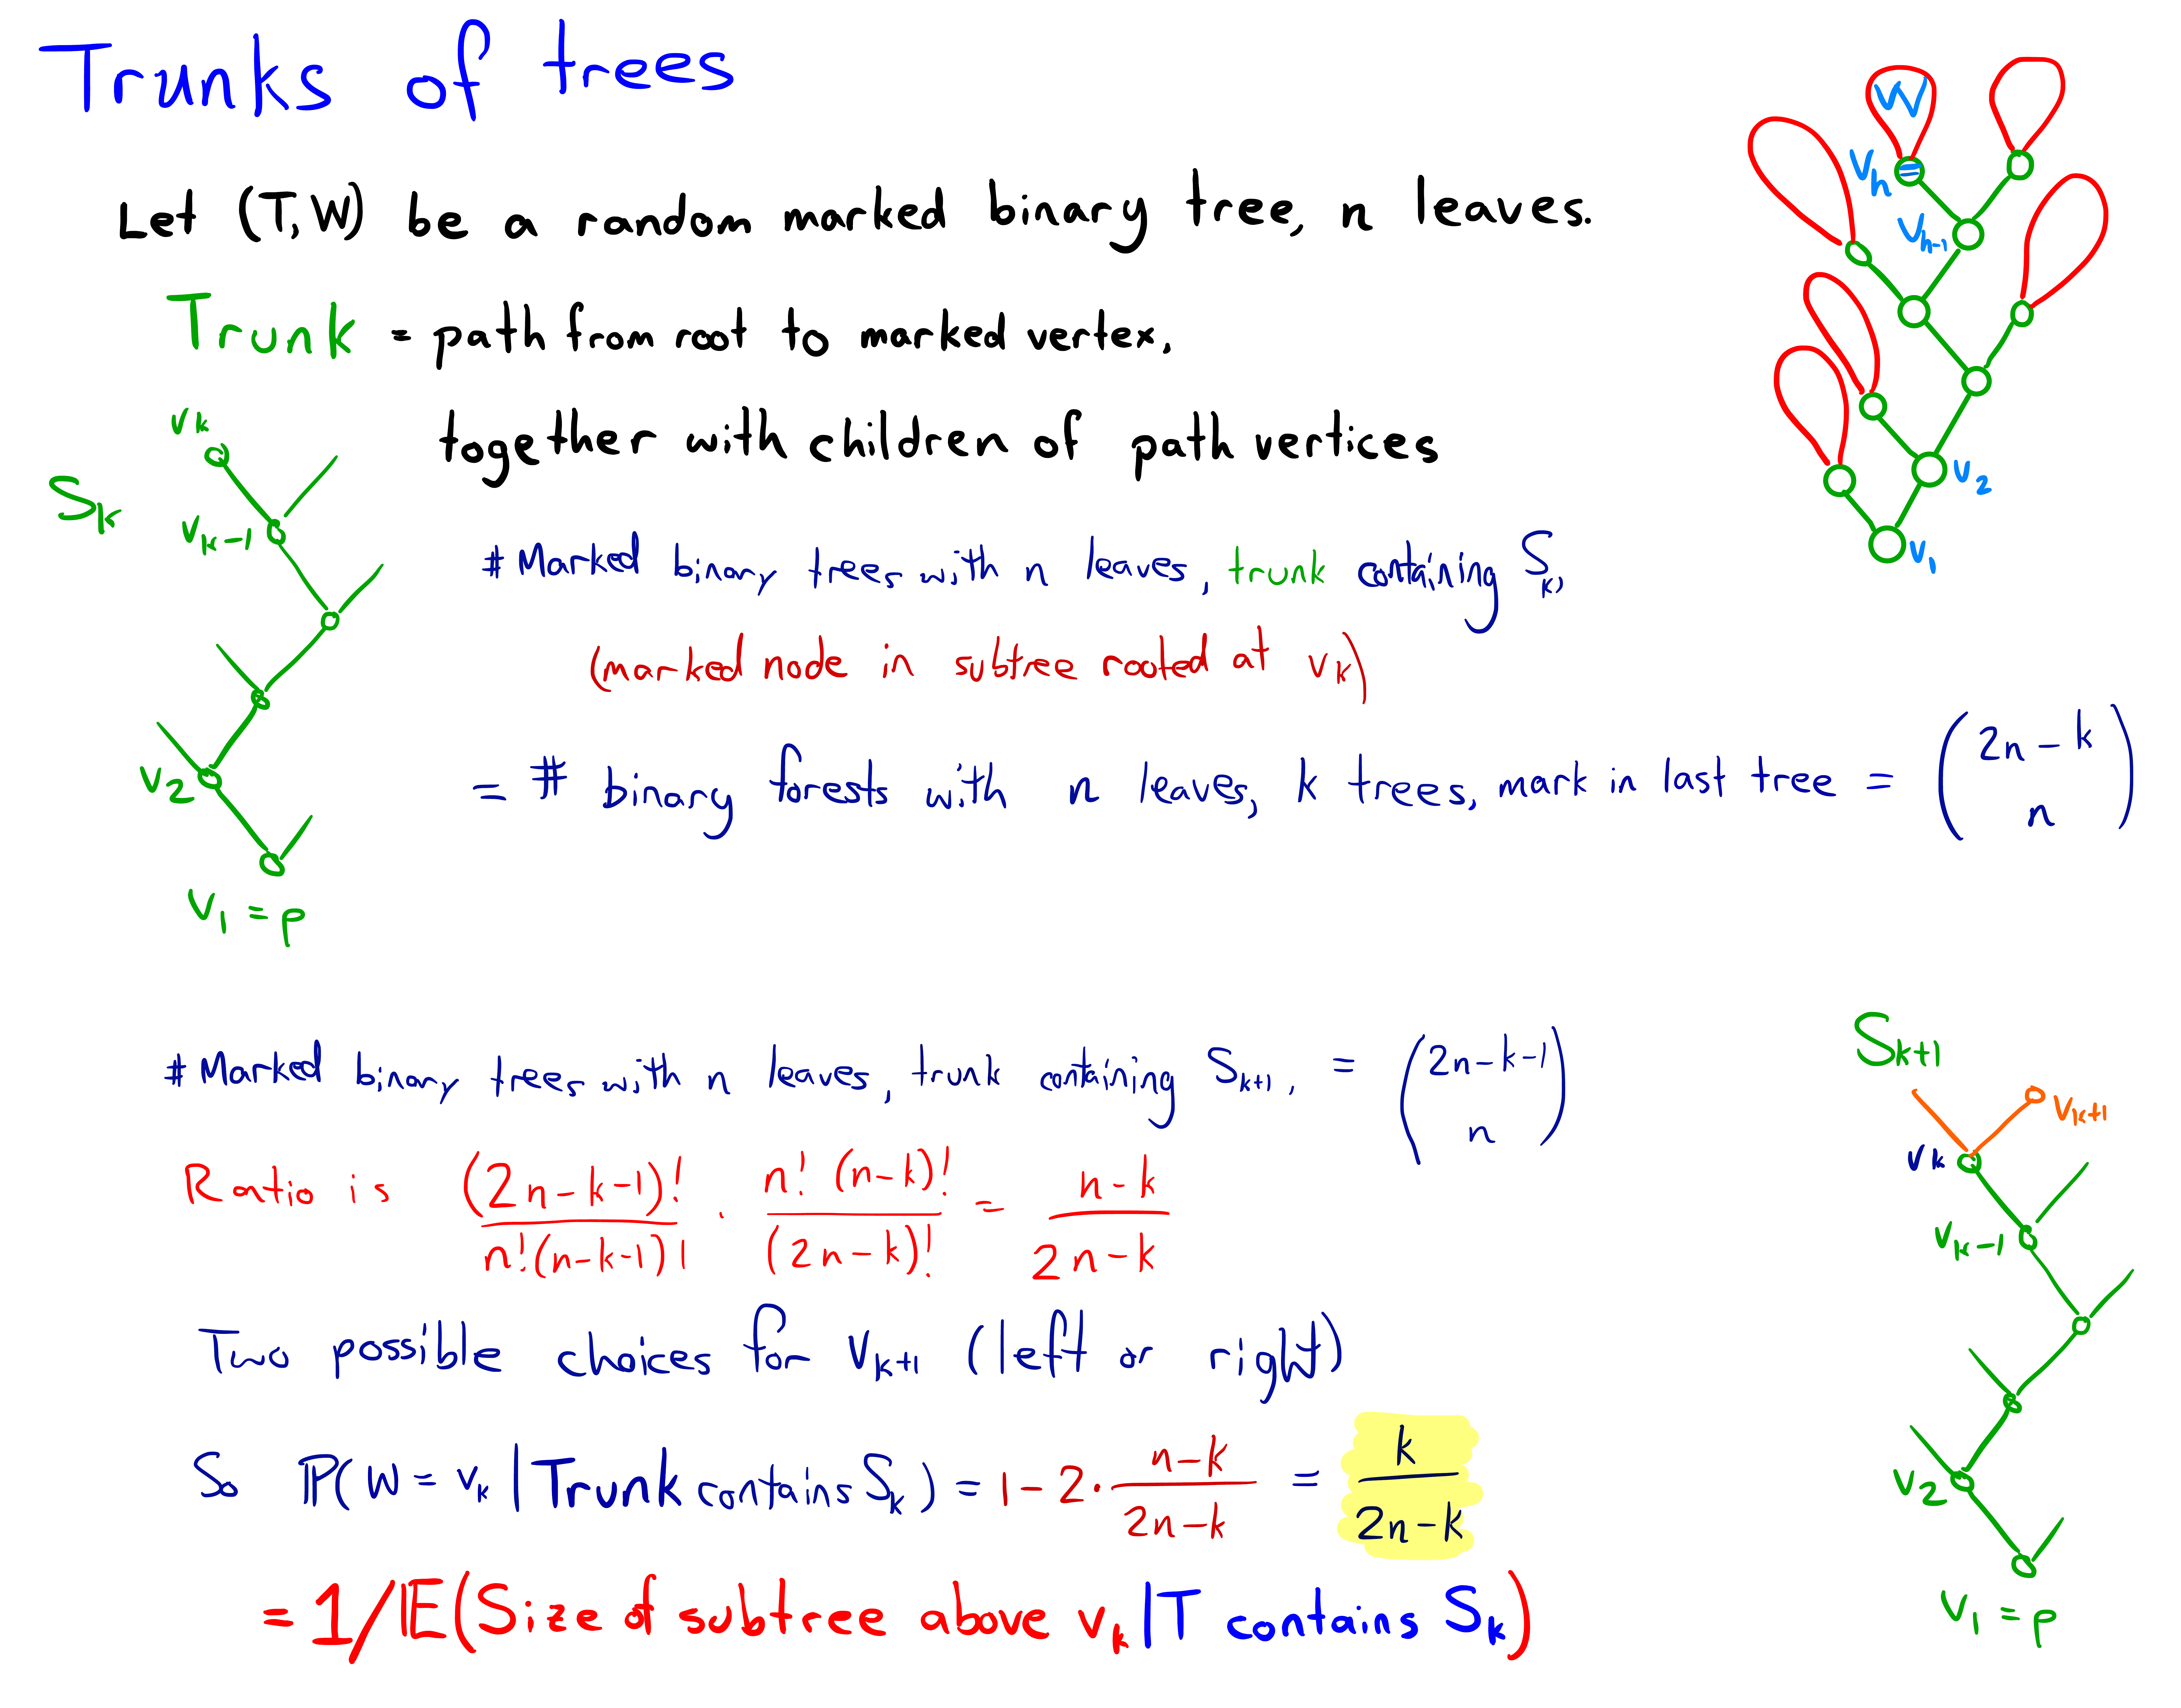 Trunks of trees
Let (T,W) be a random marked binary tree, n leaves.
Trunk = path from root to marked vertex.
together with children of path vertices
W
v_h =
v_{h-1}
v_2
v_1
S_k
v_k
v_{k-1}
v_2
v_1 = ρ
# Marked binary trees with n leaves, trunk containing S_k,
(marked node in subtree rooted at v_k)
= # binary forests with n leaves, k trees, mark in last tree = (2n-k choose n)
# Marked binary trees with n leaves, trunk containing S_{k+1}, = (2n-k-1 choose n)
Ratio is (2n-k-1)! / n!(n-k-1)! · n! (n-k)! / (2n-k)! = n-k / 2n-k
Two possible choices for v_{k+1} (left or right)
So ℙ(W = v_k | Trunk contains S_k) = 1 - 2 · n-k / 2n-k = k / 2n-k
= 1/𝔼(Size of subtree above v_k | T contains S_k)
S_{k+1}
v_{k+1}
v_k
v_{k-1}
v_2
v_1 = ρ